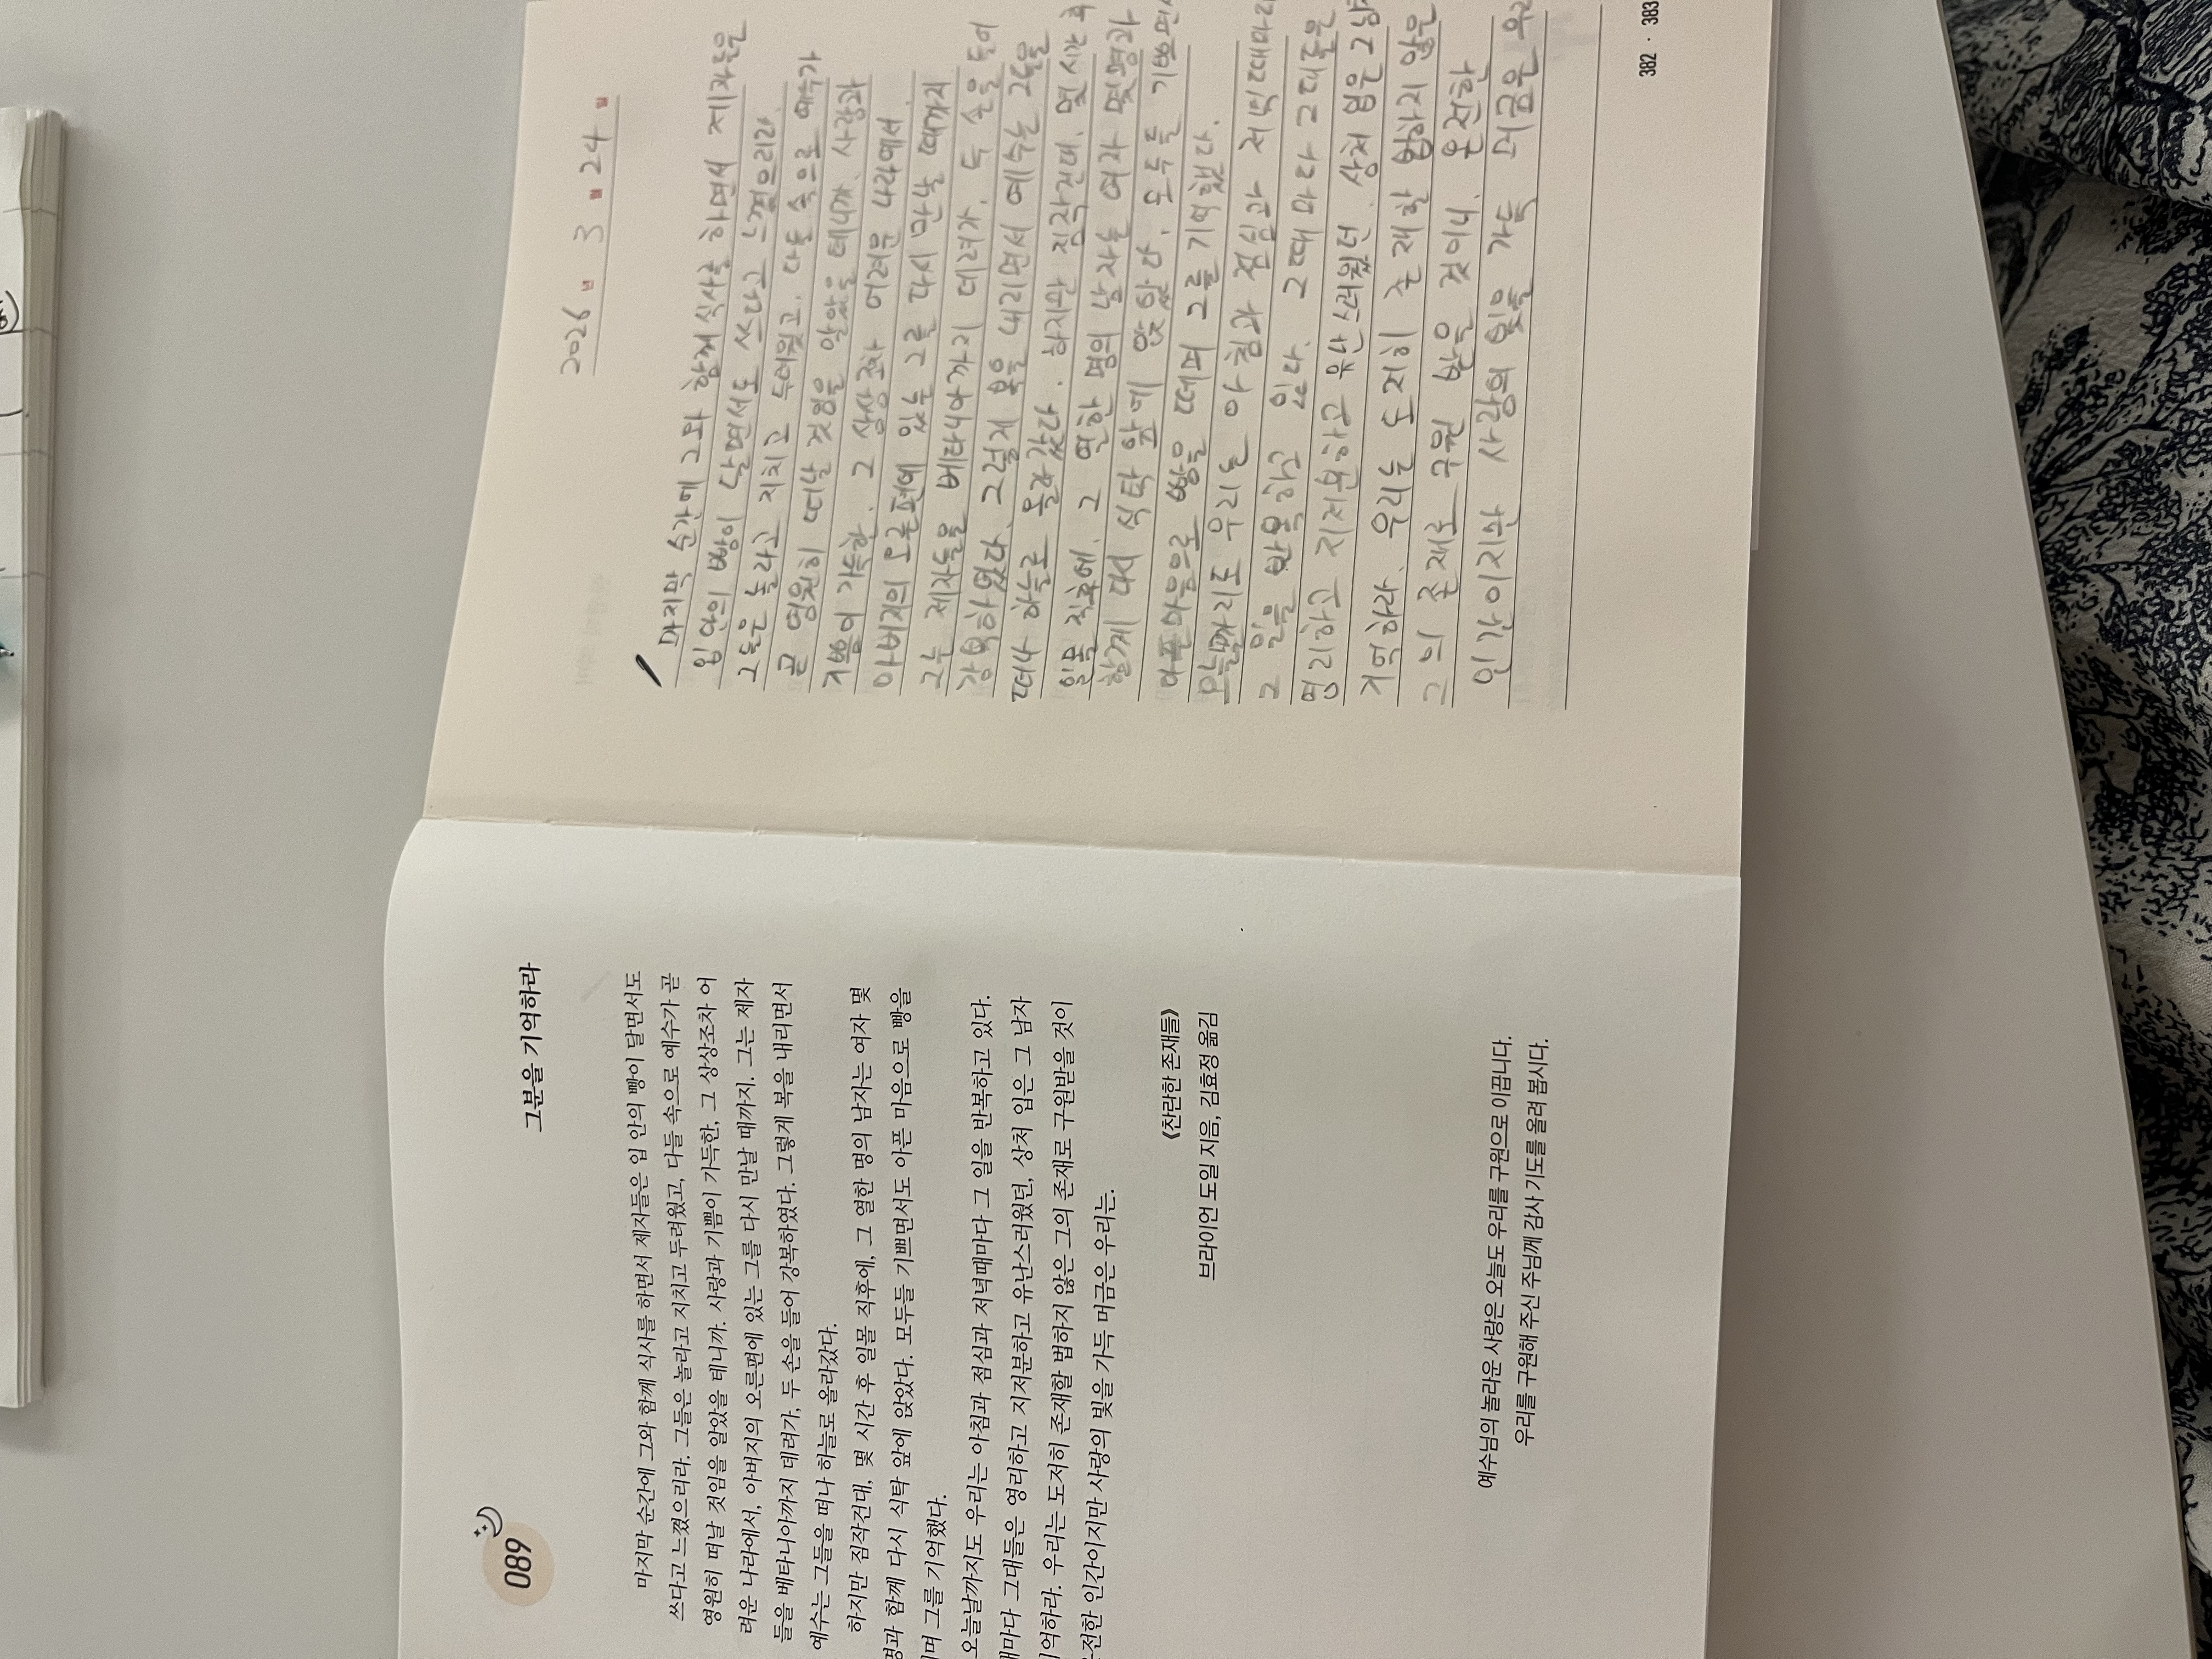 089
그분을 기억하라
마지막 순간에 그와 함께 식사를 하면서 제자들은 입 안의 빵이 달면서도
쓰다고 느꼈으리라. 그들은 놀라고 지치고 두려웠고, 다들 속으로 예수가 곧
영원히 떠날 것임을 알았을 테니까. 사랑과 기쁨이 가득한, 그 상상조차 어
려운 나라에서, 아버지의 오른편에 있는 그를 다시 만날 때까지. 그는 제자
들을 베타니아까지 데려가, 두 손을 들어 강복하였다. 그렇게 복을 내리면서
예수는 그들을 떠나 하늘로 올라갔다.
하지만 짐작건대, 몇 시간 후 일몰 직후에, 그 열한 명의 남자는 여자 몇
명과 함께 다시 식탁 앞에 앉았다. 모두들 기쁘면서도 아픈 마음으로 빵을
며 그를 기억했다.
오늘날까지도 우리는 아침과 점심과 저녁때마다 그 일을 반복하고 있다.
때마다 그대들은 영리하고 지저분하고 유난스러웠던, 상처 입은 그 남자
억하라. 우리는 도저히 존재할 법하지 않은 그의 존재로 구원받을 것이
전한 인간이지만 사랑의 빛을 가득 머금은 우리는.
《찬란한 존재들》
브라이언 도일 지음, 김효정 옮김
예수님의 놀라운 사랑은 오늘도 우리를 구원으로 이끕니다.
우리를 구원해 주신 주님께 감사 기도를 올려 봅시다.
2026 년 3 월 24 일
마지막 순간에 그와 함께 식사를 하면서 제자들은
입 안의 빵이 달면서도 쓰다고 느꼈으리라.
그들은 놀라고 지치고 두려웠고, 다들 속으로 예수가
곧 영원히 떠날 것임을 알았을 테니까. 사랑과
기쁨이 가득한, 그 상상조차 어려운 나라에서.
아버지의 오른편에 있는 그를 다시 만날 때까지
그는 제자들을 베타니아까지 데려가, 두 손을 들어
강복하였다. 그렇게 복을 내리면서 예수는 그들을
떠나 하늘로 올라갔다. 하지만 짐작건대, 몇 시간 후
일몰 직후에, 그 열한 명의 남자는 여자 몇 명과
함께 다시 식탁 앞에 앉았다. 모두들 기쁘면서
아픈 마음으로 빵을 떼며 그를 기억했다.
오늘날까지도 우리는 아침과 점심과 저녁때마다
그 일을 반복하고 있다. 그때마다 그대들은
영리하고 지저분하고 유난스러웠던, 상처 입은 그 남자
기억하라. 우리는 도저히 존재할 법하지 않은
그의 존재로 구원 받을 것이니. 온전한
인간이지만 사랑의 빛을 가득 머금은 우리
382 · 383